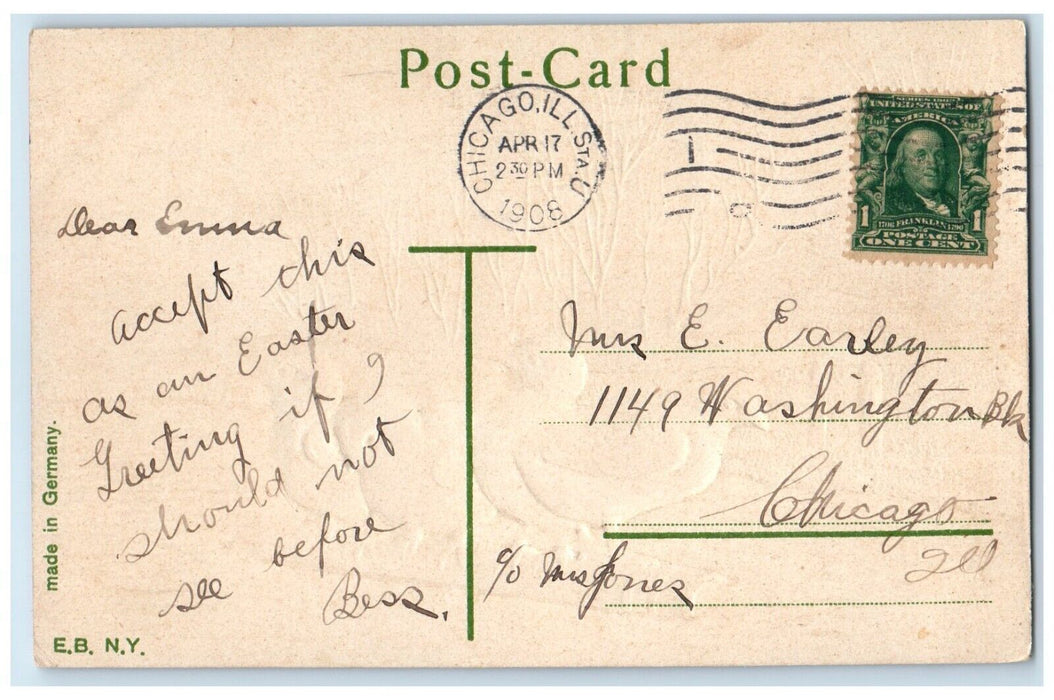 Post-Card
CHICAGO, ILL. STA. U
APR 17
2 30 PM
1908
SERIES 1902
UNITED STATES OF
AMERICA
1 1706 FRANKLIN 1790 1
POSTAGE
ONE CENT
Dear Emma
accept this
as an Easter
Greeting if I
should not
see before
Bess.
Mrs E. Earley
1149 Washington Blv
Chicago
Ill
c/o Mrs Jones
made in Germany.
E.B. N.Y.